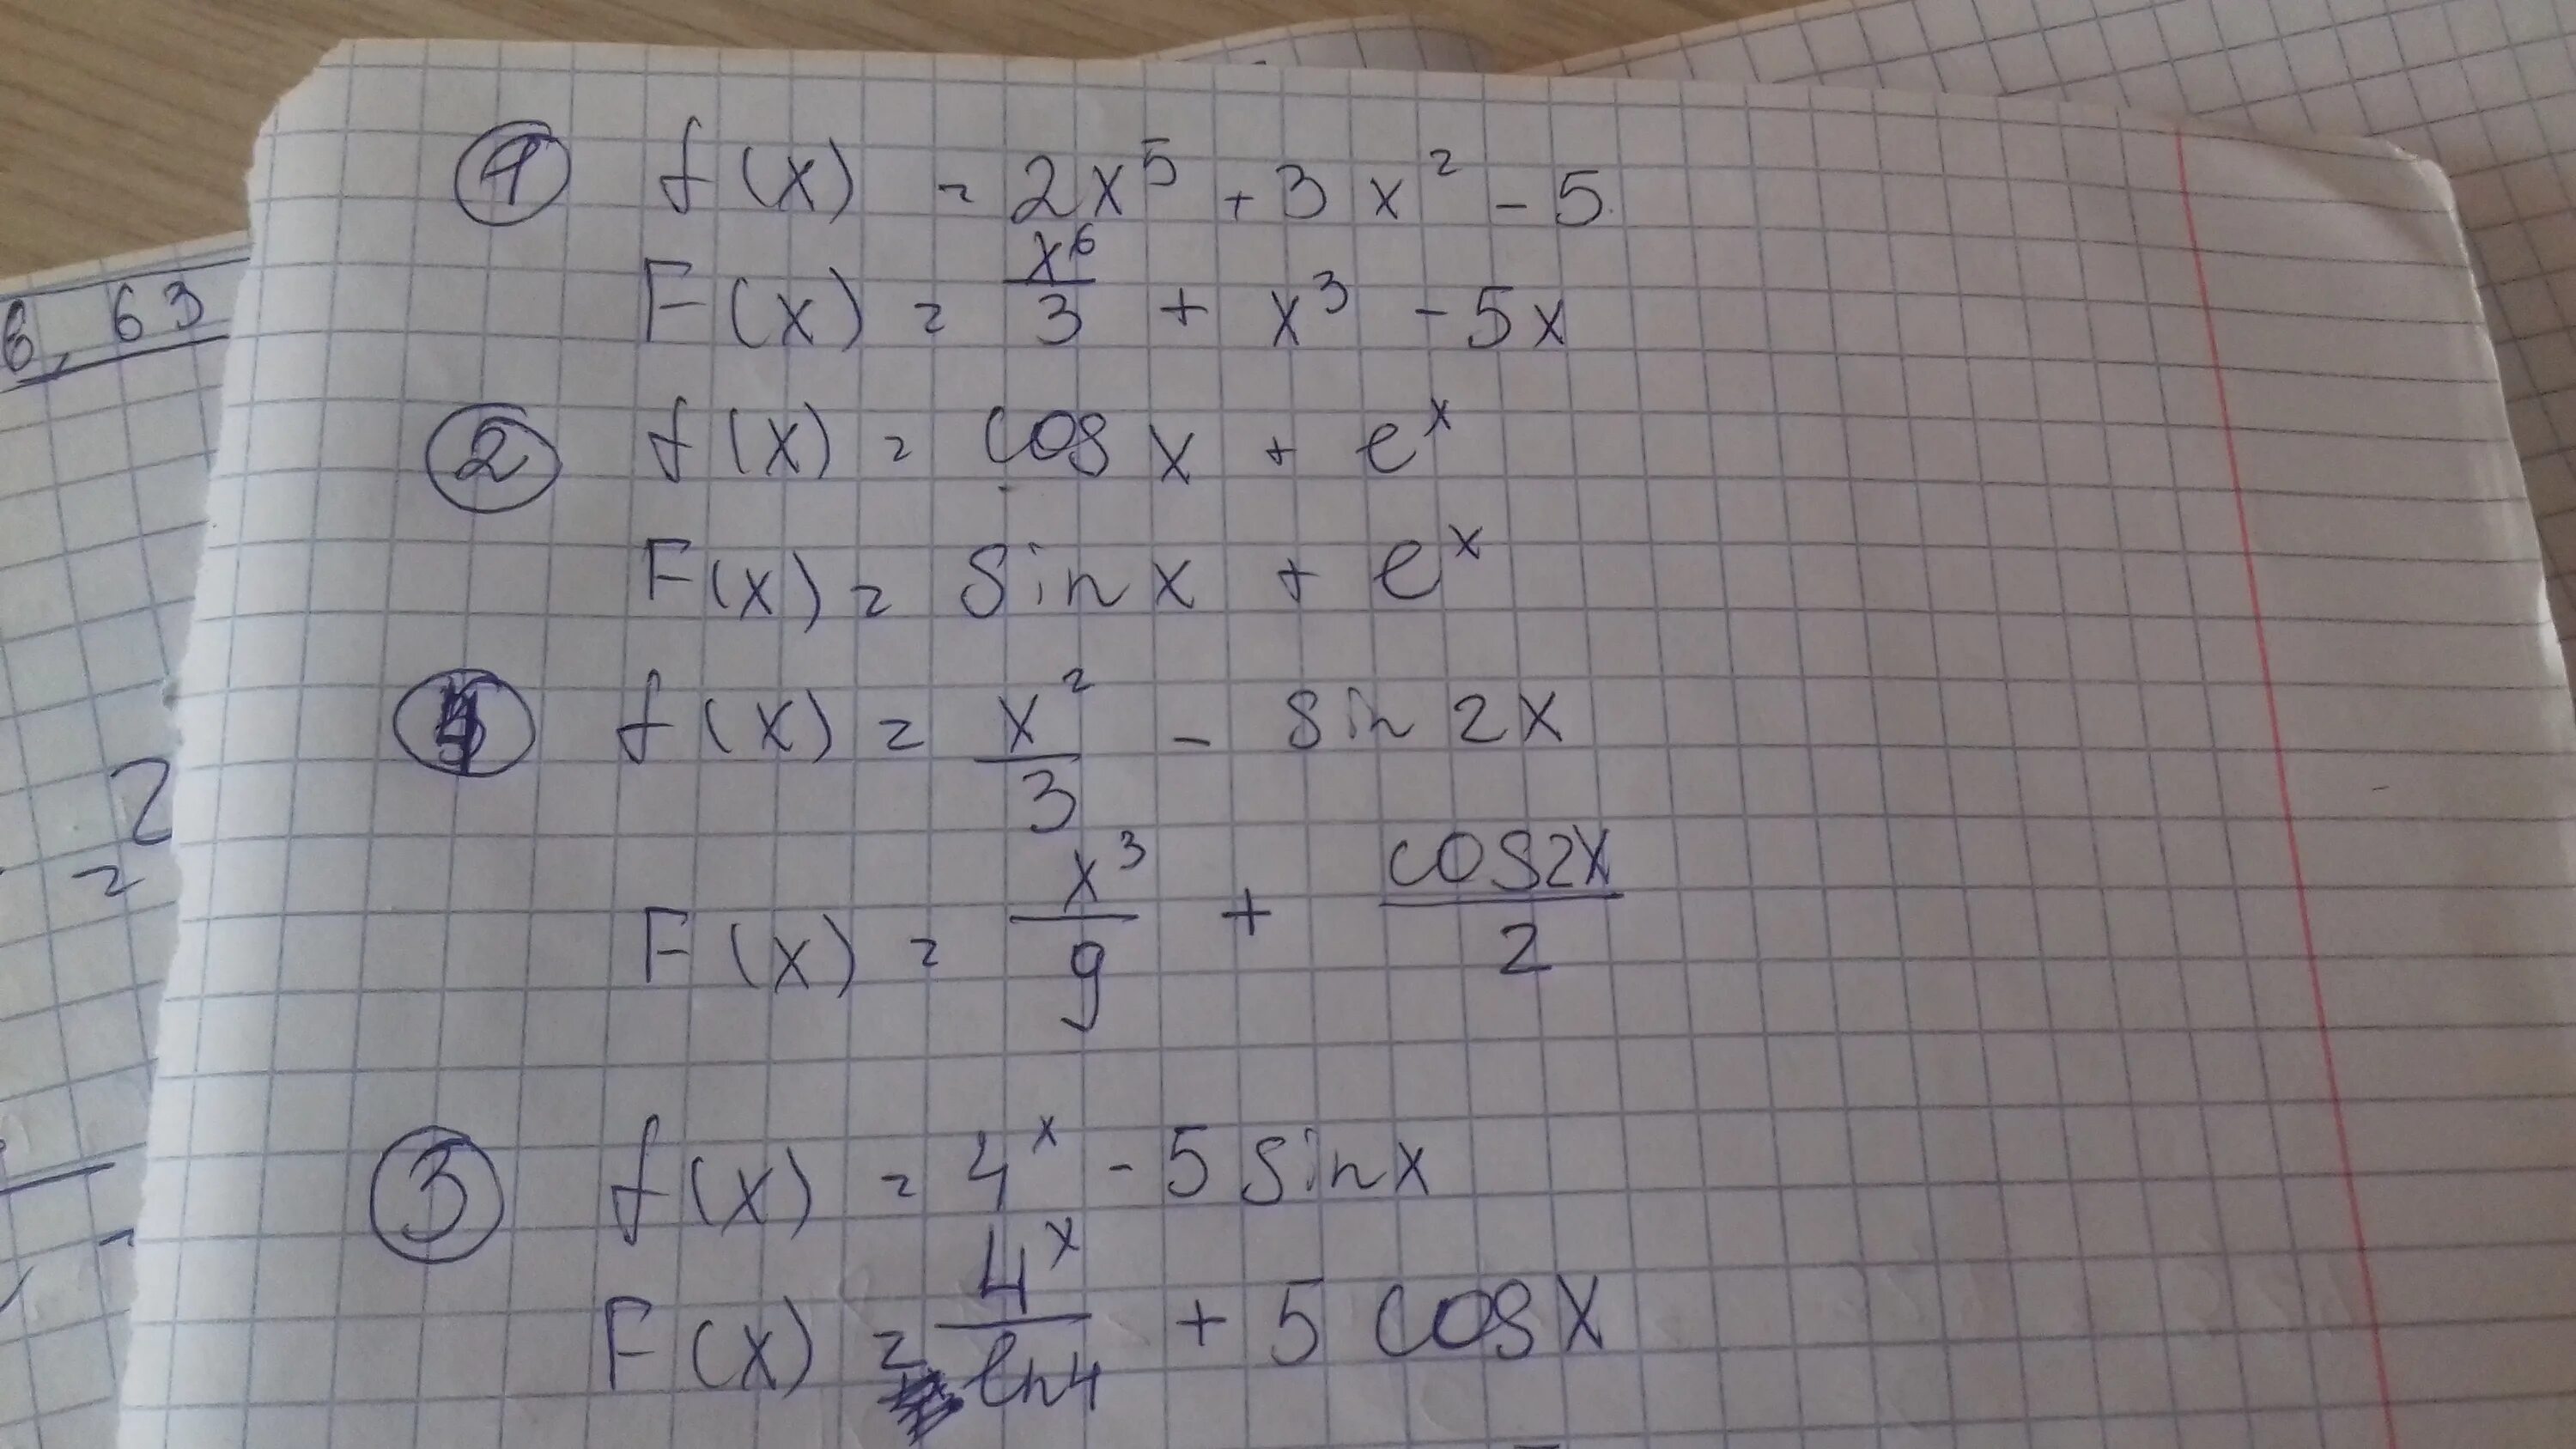 ① f(x) = 2x⁵ + 3x² - 5
F(x) = x⁶/3 + x³ - 5x
6, 63
② f(x) = cos x + eˣ
F(x) = sin x + eˣ
④ f(x) = x²/3 - sin 2x
F(x) = x³/9 + cos2x/2
= 2
③ f(x) = 4ˣ - 5 sinx
F(x) = 4ˣ/ln4 + 5 cosx